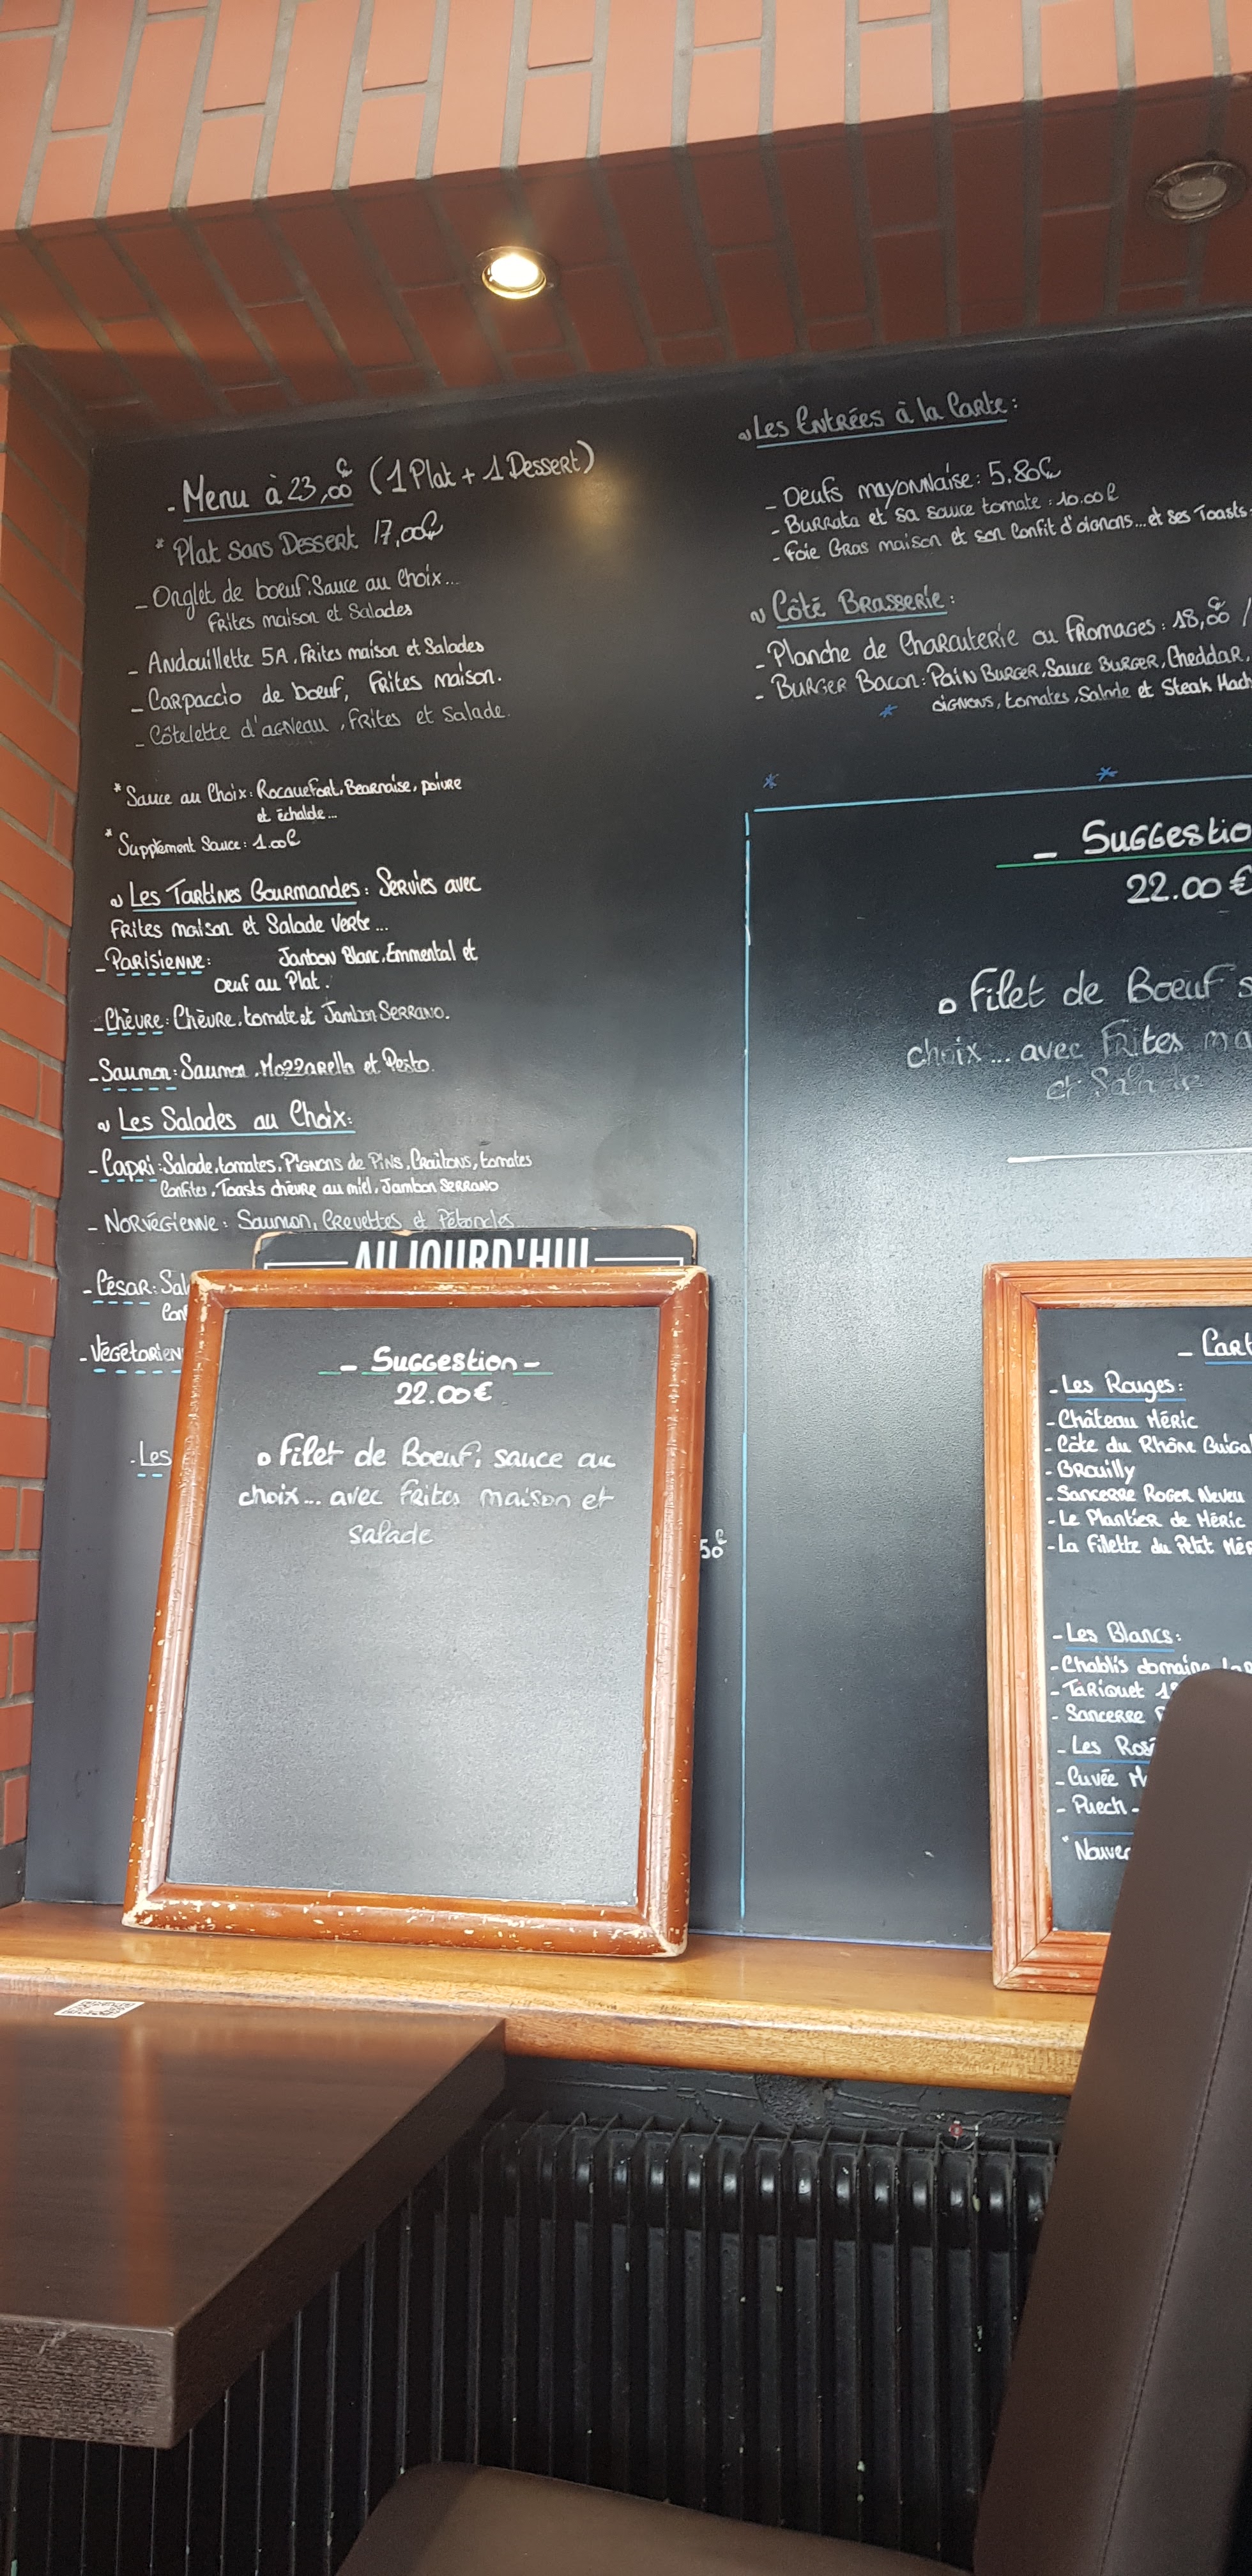 - Menu à 23,00€ (1 Plat + 1 Dessert)
* Plat Sans Dessert 17,00€
- Onglet de boeuf, Sauce au Choix...
Frites maison et Salades
- Andouillette 5A, Frites maison et Salades
- Carpaccio de boeuf, Frites maison.
- Côtelette d'agneau, Frites et Salade.
* Sauce au Choix: Roquefort, Bearnaise, poivre
et échalote...
* Supplément Sauce: 1.00€
Les Tartines Gourmandes: Servies avec
Frites maison et Salade Verte...
- Parisienne: Jambon Blanc, Emmental et
Oeuf au Plat.
- Chèvre: Chèvre, tomate et Jambon Serrano.
- Saumon: Saumon, Mozzarella et Pesto.
Les Salades au Choix:
- Capri: Salade, tomates, Pignons de Pins, Croûtons, tomates
Confites, Toasts chèvre au miel, Jambon Serrano
- Norvégienne: Saumon, Crevettes et Pétoncles
- César: Sal
Con
- Végétarien
- Les
50€
Les Entrées à la Carte:
- Oeufs mayonnaise: 5.80€
- Burrata et sa sauce tomate: 10.00€
- Foie Gras maison et son Confit d'oignons... et ses Toasts
Côté Brasserie:
- Planche de Charcuterie ou Fromages: 18,00€ /
- Burger Bacon: Pain Burger, Sauce Burger, Cheddar,
oignons, tomates, Salade et Steak Hach
- Suggestio
22.00€
Filet de Boeuf s
choix... avec Frites ma
et Salade
AUJOURD'HUI
- Suggestion -
22.00€
Filet de Boeuf, sauce au
choix... avec frites maison et
salade
- Cart
- Les Rouges:
- Château Méric
- Côte du Rhône Guigal
- Brouilly
- Sancerre Roger Neveu
- Le Plantier de Méric
- La Fillette du Petit Mér
- Les Blancs:
- Chablis domaine
- Tariquet 1
- Sancerre
- Les Rosé
- Cuvée M
- Puech -
* Nouve